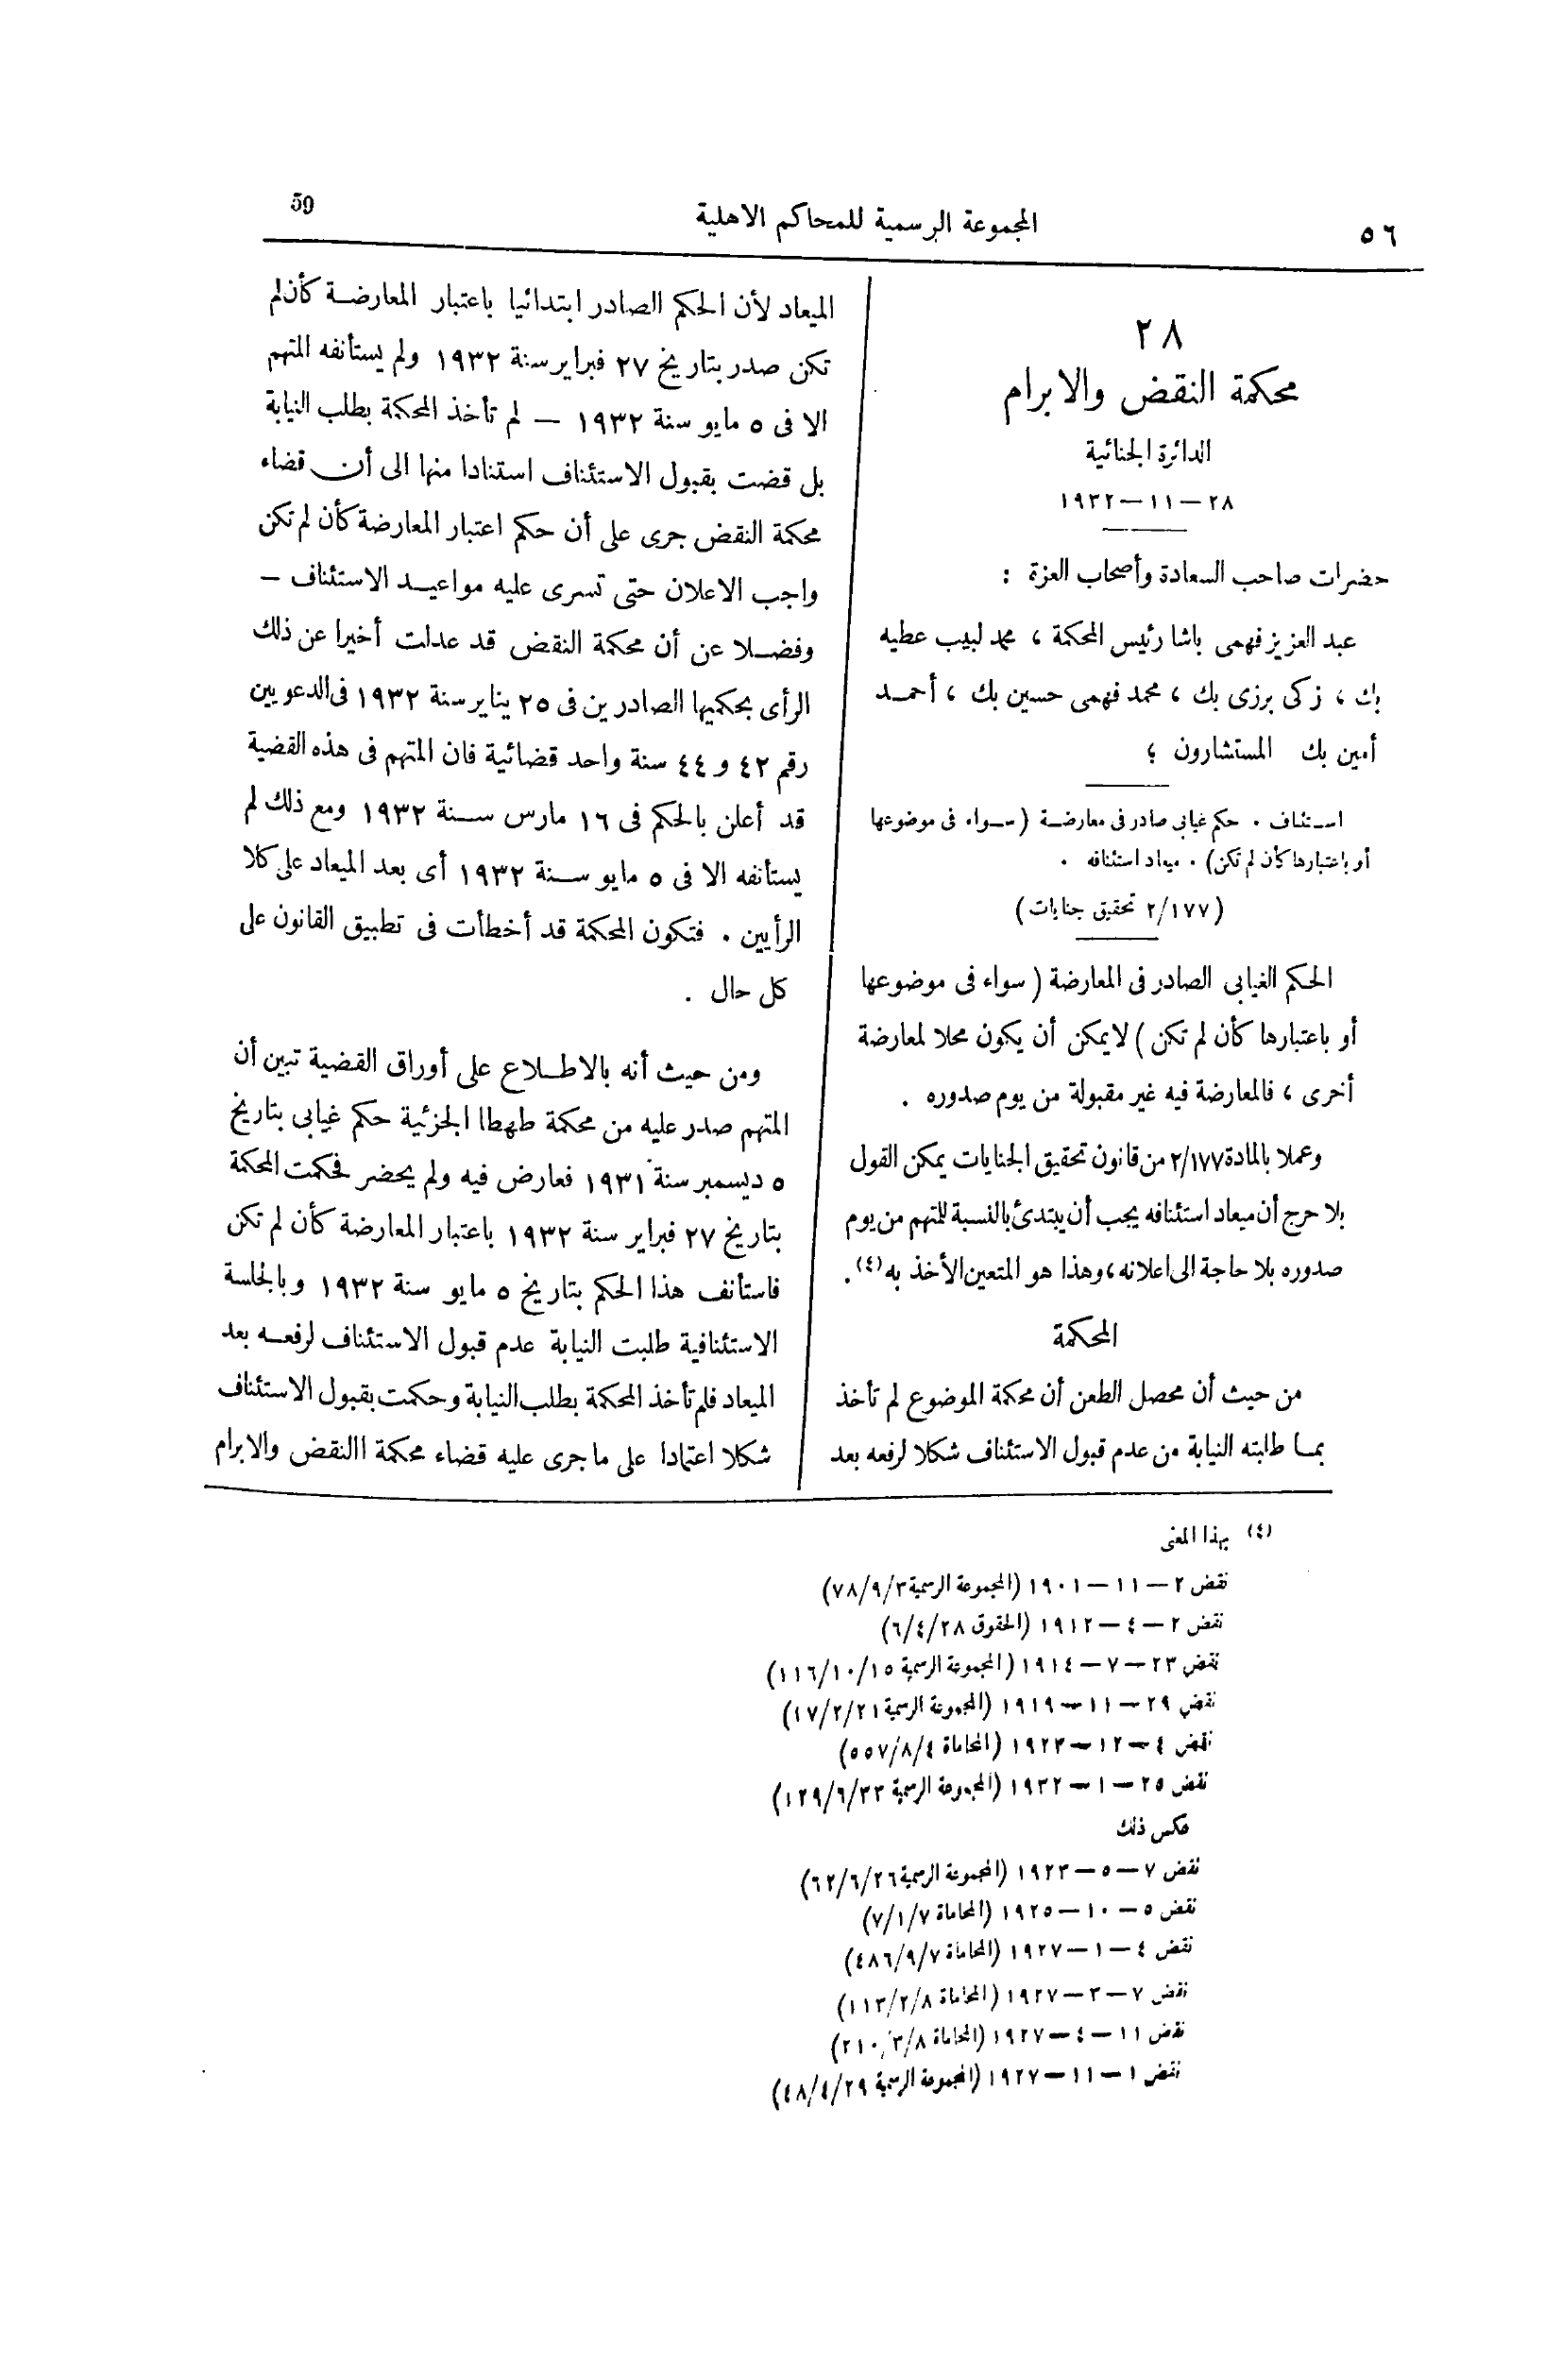 ٥٦
المجموعة الرسمية للمحاكم الاهلية
59
٢٨
محكمة النقض والابرام
الدائرة الجنائية
٢٨ — ١١ — ١٩٣٢
حضرات صاحب السعادة وأصحاب العزة :
عبد العزيز فهمى باشا رئيس المحكمة ، محمد لبيب عطيه
بك ، زكى برزى بك ، محمد فهمى حسين بك ، أحمد
أمين بك المستشارون ؛
استئناف . حكم غيابى صادر فى معارضة (سواء فى موضوعها
أو باعتبارها كأن لم تكن) . ميعاد استئنافه .
(٢/١٧٧ تحقيق جنايات)
الحكم الغيابى الصادر فى المعارضة (سواء فى موضوعها
أو باعتبارها كأن لم تكن) لايمكن أن يكون محلا لمعارضة
أخرى ، فالمعارضة فيه غير مقبولة من يوم صدوره .
وعملا بالمادة ٢/١٧٧ من قانون تحقيق الجنايات يمكن القول
بلا حرج أن ميعاد استئنافه يجب أن يبتدئ بالنسبة للمتهم من يوم
صدوره بلا حاجة الى اعلانه ، وهذا هو المتعين الأخذ به (٤) .
المحكمة
من حيث أن محصل الطعن أن محكمة الموضوع لم تأخذ
بما طلبته النيابة من عدم قبول الاستئناف شكلا لرفعه بعد
الميعاد لأن الحكم الصادر ابتدائيا باعتبار المعارضة كأن لم
تكن صدر بتاريخ ٢٧ فبراير سنة ١٩٣٢ ولم يستأنفه المتهم
الا فى ٥ مايو سنة ١٩٣٢ — لم تأخذ المحكمة بطلب النيابة
بل قضت بقبول الاستئناف استنادا منها الى أن قضاء
محكمة النقض جرى على أن حكم اعتبار المعارضة كأن لم تكن
واجب الاعلان حتى تسرى عليه مواعيد الاستئناف —
وفضلا عن أن محكمة النقض قد عدلت أخيرا عن ذلك
الرأى بحكميها الصادرين فى ٢٥ يناير سنة ١٩٣٢ فى الدعويين
رقم ٤٢ و ٤٤ سنة واحد قضائية فان المتهم فى هذه القضية
قد أعلن بالحكم فى ١٦ مارس سنة ١٩٣٢ ومع ذلك لم
يستأنفه الا فى ٥ مايو سنة ١٩٣٢ أى بعد الميعاد على كلا
الرأيين . فتكون المحكمة قد أخطأت فى تطبيق القانون على
كل حال .
ومن حيث أنه بالاطلاع على أوراق القضية تبين أن
المتهم صدر عليه من محكمة طهطا الجزئية حكم غيابى بتاريخ
٥ ديسمبر سنة ١٩٣١ فعارض فيه ولم يحضر فحكمت المحكمة
بتاريخ ٢٧ فبراير سنة ١٩٣٢ باعتبار المعارضة كأن لم تكن
فاستأنف هذا الحكم بتاريخ ٥ مايو سنة ١٩٣٢ وبالجلسة
الاستئنافية طلبت النيابة عدم قبول الاستئناف لرفعه بعد
الميعاد فلم تأخذ المحكمة بطلب النيابة وحكمت بقبول الاستئناف
شكلا اعتمادا على ما جرى عليه قضاء محكمة االنقض والابرام
(٤) بهذا المعنى
نقض ٢ — ١١ — ١٩٠١ (المجموعة الرسمية ٧٨/٩/٣)
نقض ٢ — ٤ — ١٩١٢ (الحقوق ٦/٤/٢٨)
نقض ٢٣ — ٧ — ١٩١٤ (المجموعة الرسمية ١١٦/١٠/١٥)
نقض ٢٩ — ١١ — ١٩١٩ (المجموعة الرسمية ١٧/٢/٢١)
نقض ٤ — ١٢ — ١٩٢٣ (المحاماة ٥٥٧/٨/٤)
نقض ٢٥ — ١ — ١٩٣٢ (المجموعة الرسمية ١٢٩/٦/٣٣)
عكس ذلك
نقض ٧ — ٥ — ١٩٢٣ (المجموعة الرسمية ٦٢/٦/٢٦)
نقض ٥ — ١٠ — ١٩٢٥ (المحاماة ٧/١/٧)
نقض ٤ — ١ — ١٩٢٧ (المحاماة ٤٨٦/٩/٧)
نقض ٧ — ٣ — ١٩٢٧ (المحاماة ١١٣/٢/٨)
نقض ١١ — ٤ — ١٩٢٧ (المحاماة ٢١٠/٣/٨)
نقض ١ — ١١ — ١٩٢٧ (المجموعة الرسمية ٤٨/٤/٢٩)